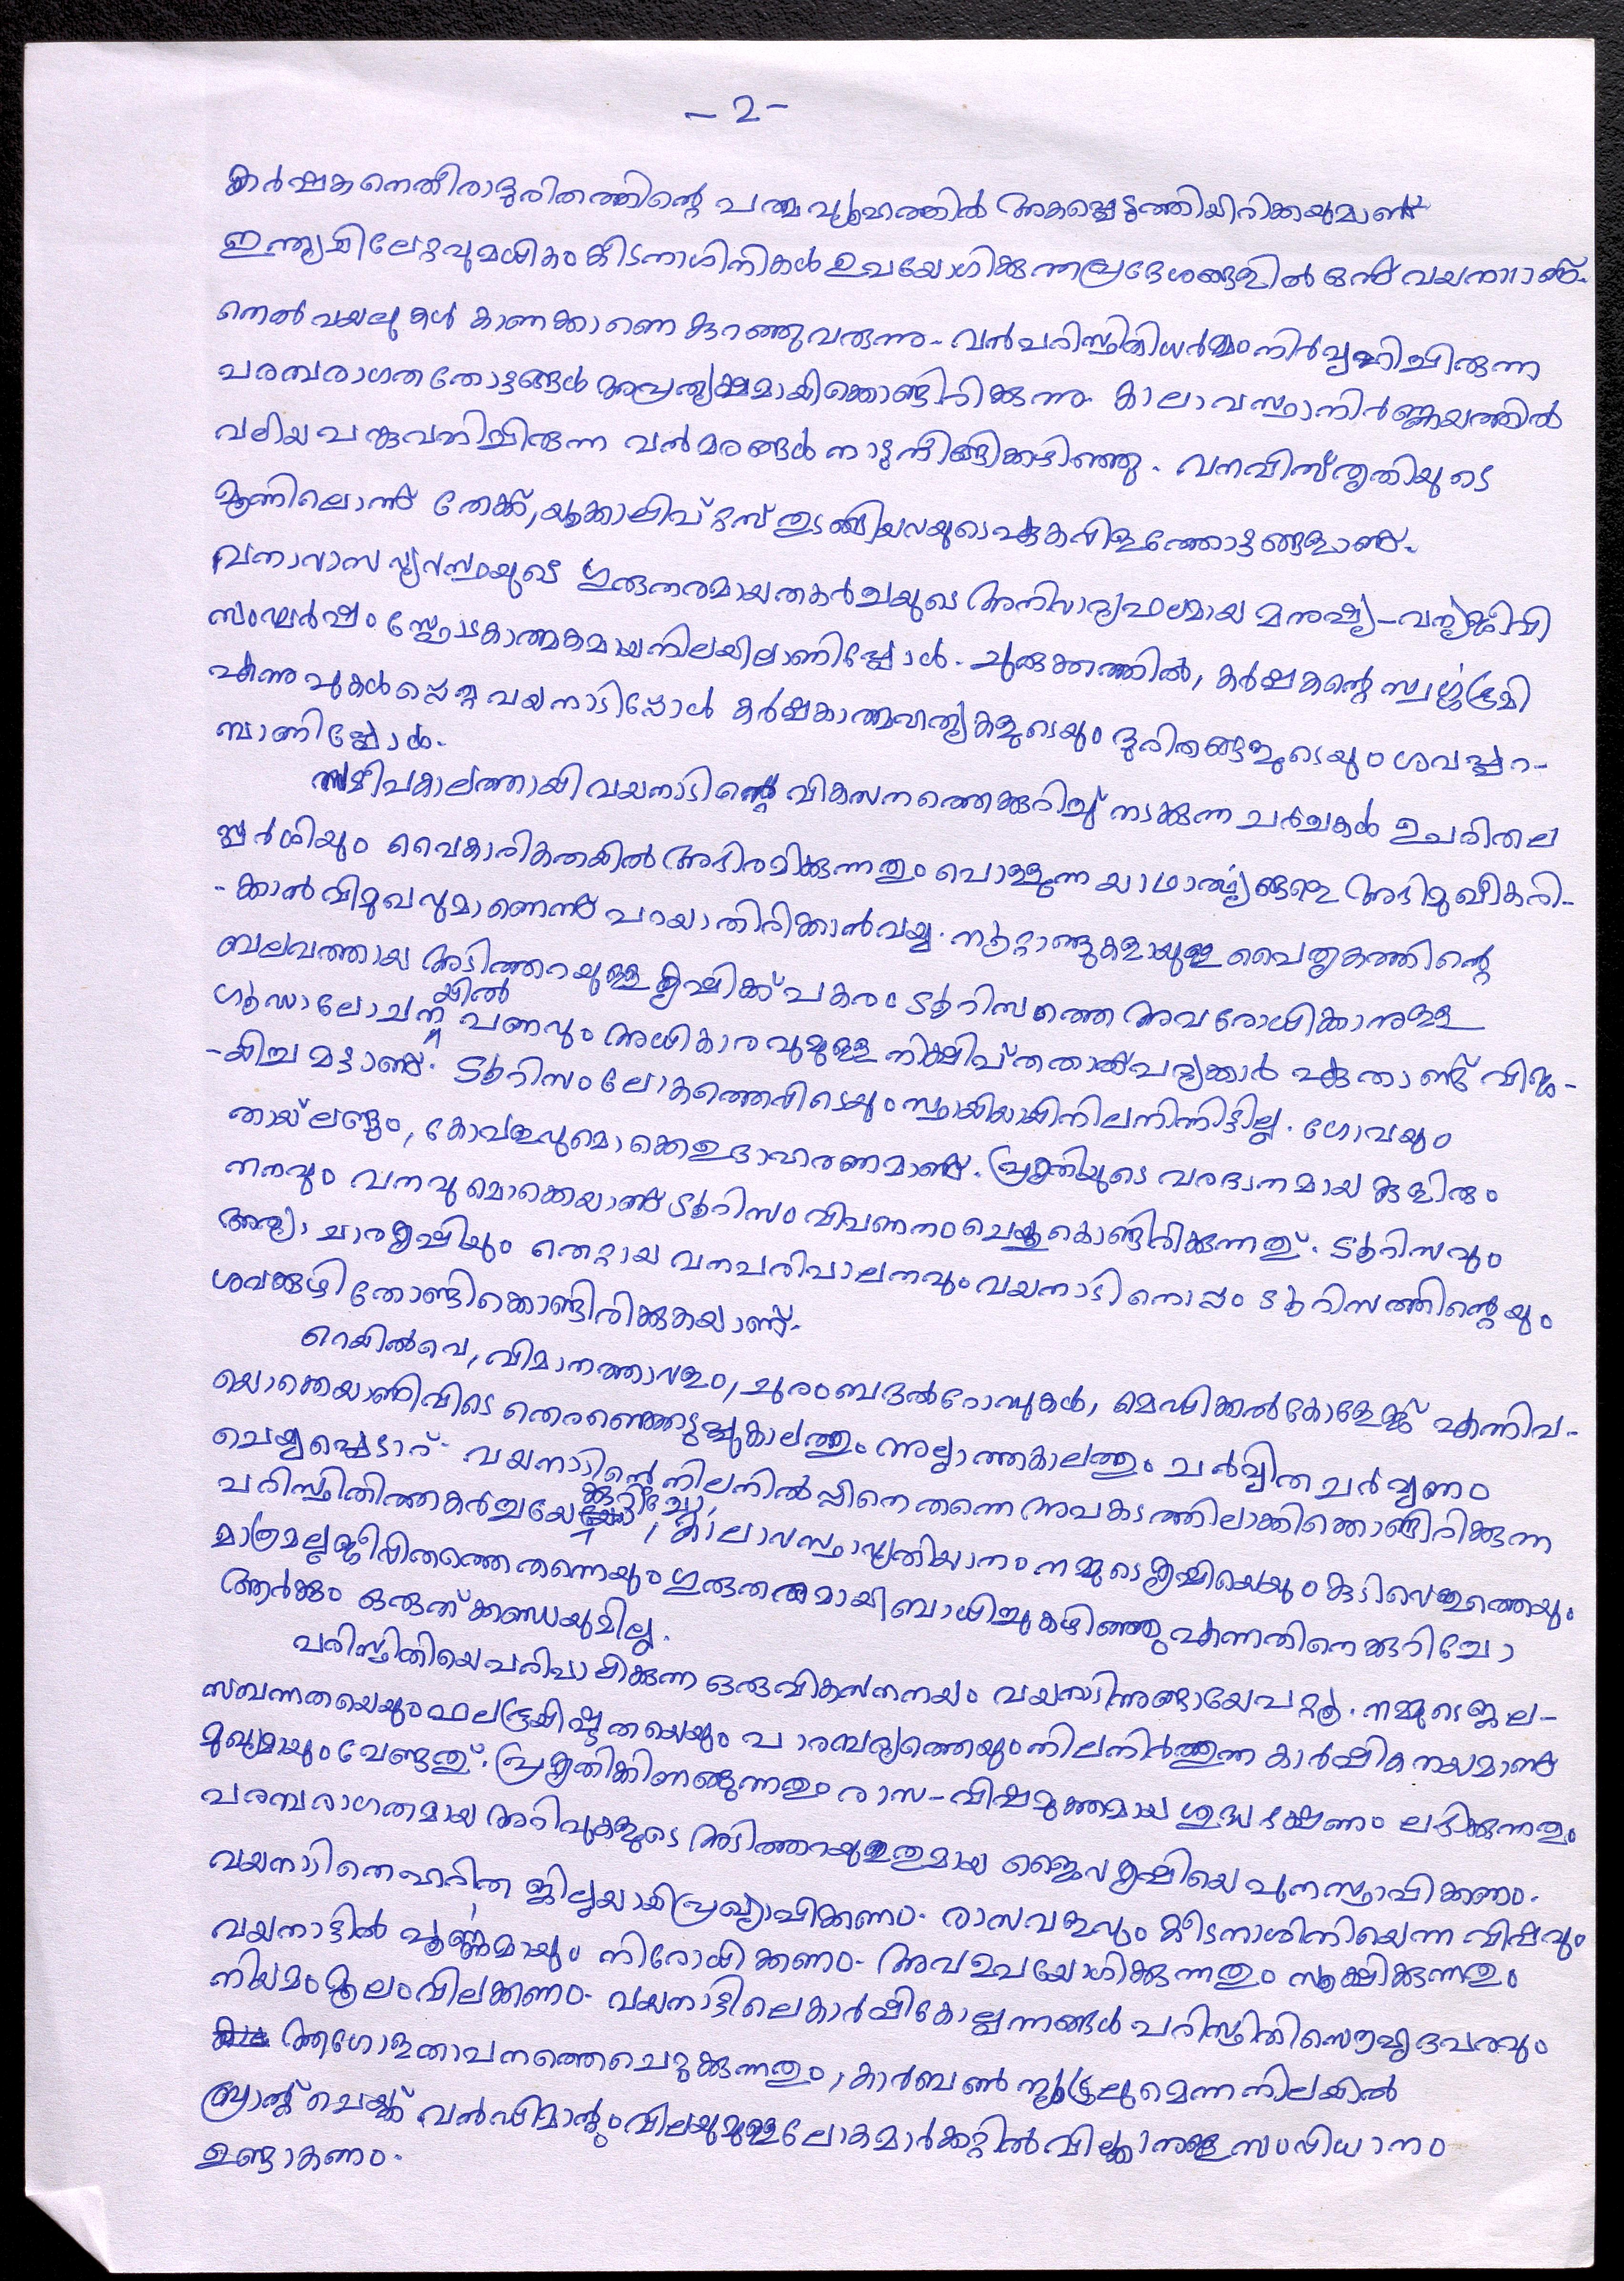 – 2 –
കർഷകനെതീരാദുരിതത്തിന്റെ പത്മവ്യൂഹത്തിൽ അകപ്പെടുത്തിയിരിക്കയുമാണ്
ഇന്ത്യയിലേറ്റവുമധികം കീടനാശിനികൾ ഉപയോഗിക്കുന്നപ്രദേശങ്ങളിൽ ഒന്ന് വയനാടാണ്.
നെൽ വയലുകൾ കാണക്കാണെ കുറഞ്ഞുവരുന്നു. വൻപരിസ്ഥിതിധർമ്മം നിർവ്വഹിച്ചിരുന്ന
പരമ്പരാഗത തോട്ടങ്ങൾ അപ്രത്യക്ഷമായിക്കൊണ്ടിരിക്കുന്നു. കാലാവസ്ഥാനിർണ്ണയത്തിൽ
വലിയ പങ്കുവഹിച്ചിരുന്ന വൻമരങ്ങൾ നാടുനീങ്ങിക്കഴിഞ്ഞു. വനവിസ്തൃതിയുടെ
മൂന്നിലൊന്ന് തേക്ക്, യൂക്കാലിപ്റ്റസ് തുടങ്ങിയവയുടെഏകവിളത്തോട്ടങ്ങളാണ്.
വനാവാസ വ്യവസ്ഥയുടെ ഗുരുതരമായതകർച്ചയുടെ അനിവാര്യഫലമായ മനുഷ്യ–വന്യജീവി
സംഘർഷം സ്ഫോടകാത്മകമായനിലയിലാണിപ്പോൾ. ചുരുക്കത്തിൽ, കർഷകന്റെ സ്വർഗ്ഗഭൂമി
എന്നു പുകൾപ്പെറ്റ വയനാടിപ്പോൾ കർഷകാത്മഹത്യകളുടെയും ദുരിതങ്ങളുടെയും ശവപ്പറ-
മ്പാണിപ്പോൾ.
സമീപകാലത്തായി വയനാടിന്റെ വികസനത്തെക്കുറിച്ച് നടക്കുന്ന ചർച്ചകൾ ഉപരിതല
സ്പർശിയും വൈകാരികതയിൽ അഭിരമിക്കുന്നതും പൊള്ളുന്ന യാഥാർത്ഥ്യങ്ങളെ അഭിമുഖീകരി-
-ക്കാൻ വിമുഖവുമാണെന്ന് പറയാതിരിക്കാൻവയ്യ. നൂറ്റാണ്ടുകളായുള്ള പൈതൃകത്തിന്റെ
ബലവത്തായ അടിത്തറയുള്ള കൃഷിക്ക് പകരം ടൂറിസത്തെ അവരോധിക്കാനുള്ള
ഗൂഢാലോചനയിൽ പണവും അധികാരവുമുള്ള നിക്ഷിപ്തതാത്പര്യക്കാർ ഏതാണ്ട് വിജ-
-യിച്ച മട്ടാണ്. ടൂറിസം ലോകത്തെവിടെയും സ്ഥായിയായിനിലനിന്നിട്ടില്ല. ഗോവയും
തായ്‌ലണ്ടും, കോവളവുമൊക്കെഉദാഹരണമാണ്. പ്രകൃതിയുടെ വരദാനമായ കുളിരും
നനവും വനവുമൊക്കെയാണ് ടൂറിസം വിപണനം ചെയ്തുകൊണ്ടിരിക്കുന്നത്. ടൂറിസവും
അത്യാചാരകൃഷിയും തെറ്റായ വനപരിപാലനവും വയനാടിനൊപ്പം ടൂറിസത്തിന്റെയും
ശവക്കുഴി തോണ്ടിക്കൊണ്ടിരിക്കുകയാണ്.
റെയിൽവെ, വിമാനത്താവളം, ചുരംബദൽറോഡുകൾ, മെഡിക്കൽകോളേജ് എന്നിവ-
യൊക്കെയാണിവിടെ തെരഞ്ഞെടുപ്പുകാലത്തും അല്ലാത്തകാലത്തും ചർവ്വിത ചർവ്വണം
ചെയ്യപ്പെടാറ്. വയനാടിന്റെ നിലനിൽപ്പിനെ തന്നെ അപകടത്തിലാക്കിക്കൊണ്ടിരിക്കുന്ന
പരിസ്ഥിതിത്തകർച്ചയേക്കുറിച്ചോ, കാലാവസ്ഥാവ്യതിയാനം നമ്മുടെ കൃഷിയെയും കുടിവെള്ളത്തെയും
മാത്രമല്ല ജീവിതത്തെ തന്നെയും ഗുരുതരമായി ബാധിച്ചുകഴിഞ്ഞു എന്നതിനെക്കുറിച്ചോ
ആർക്കും ഒരുത്ക്കണ്ഠയുമില്ല.
പരിസ്ഥിതിയെപരിപാലിക്കുന്ന ഒരു വികസനനയം വയനാടിനുണ്ടായേപറ്റൂ. നമ്മുടെ ജല-
സമ്പന്നതയെയും ഫലഭൂയിഷ്ഠതയെയും പാരമ്പര്യത്തെയും നിലനിർത്തുന്ന കാർഷികനയമാണ്
മുഖ്യമായും വേണ്ടത്. പ്രകൃതിക്കിണങ്ങുന്നതും രാസ–വിഷമുക്തമായ ശുദ്ധ ഭക്ഷണം ലഭിക്കുന്നതും
പരമ്പരാഗതമായ അറിവുകളുടെ അടിത്തറയുള്ളതുമായ ജൈവകൃഷിയെ പുനസ്ഥാപിക്കണം.
വയനാടിനെഹരിത ജില്ലയായിപ്രഖ്യാപിക്കണം. രാസവളവും കീടനാശിനിയെന്ന വിഷവും
വയനാട്ടിൽ പൂർണ്ണമായും നിരോധിക്കണം. അവ ഉപയോഗിക്കുന്നതും സൂക്ഷിക്കുന്നതും
നിയമം മൂലം വിലക്കണം. വയനാട്ടിലെകാർഷികോല്പന്നങ്ങൾ പരിസ്ഥിതിസൌഹൃദപരവും
ആഗോളതാപനത്തെചെറുക്കുന്നതും, കാർബൺ ന്യൂട്രലുമെന്ന നിലയിൽ
ബ്രാന്റ് ചെയ്ത് വൻഡിമാന്റും വിലയുമുള്ള ലോകമാർക്കറ്റിൽ വില്ക്കാനുള്ള സംവിധാനം
ഉണ്ടാകണം.